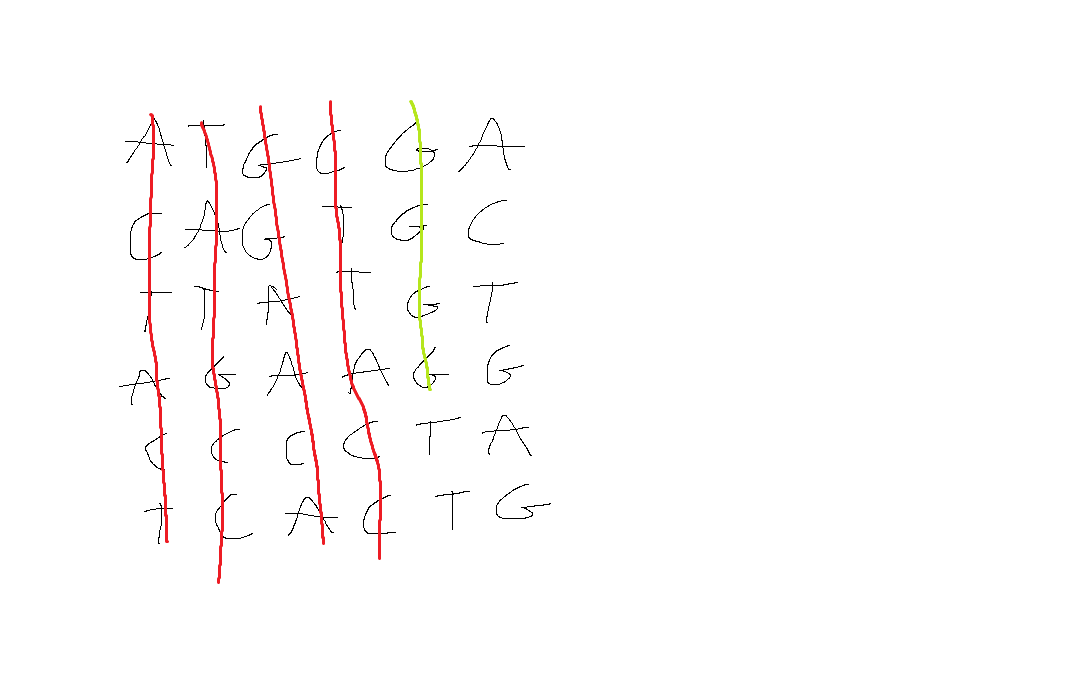 A T G C G A
C A G T G C
T T A T G T
A G A A G G
C C C C T A
T C A C T G